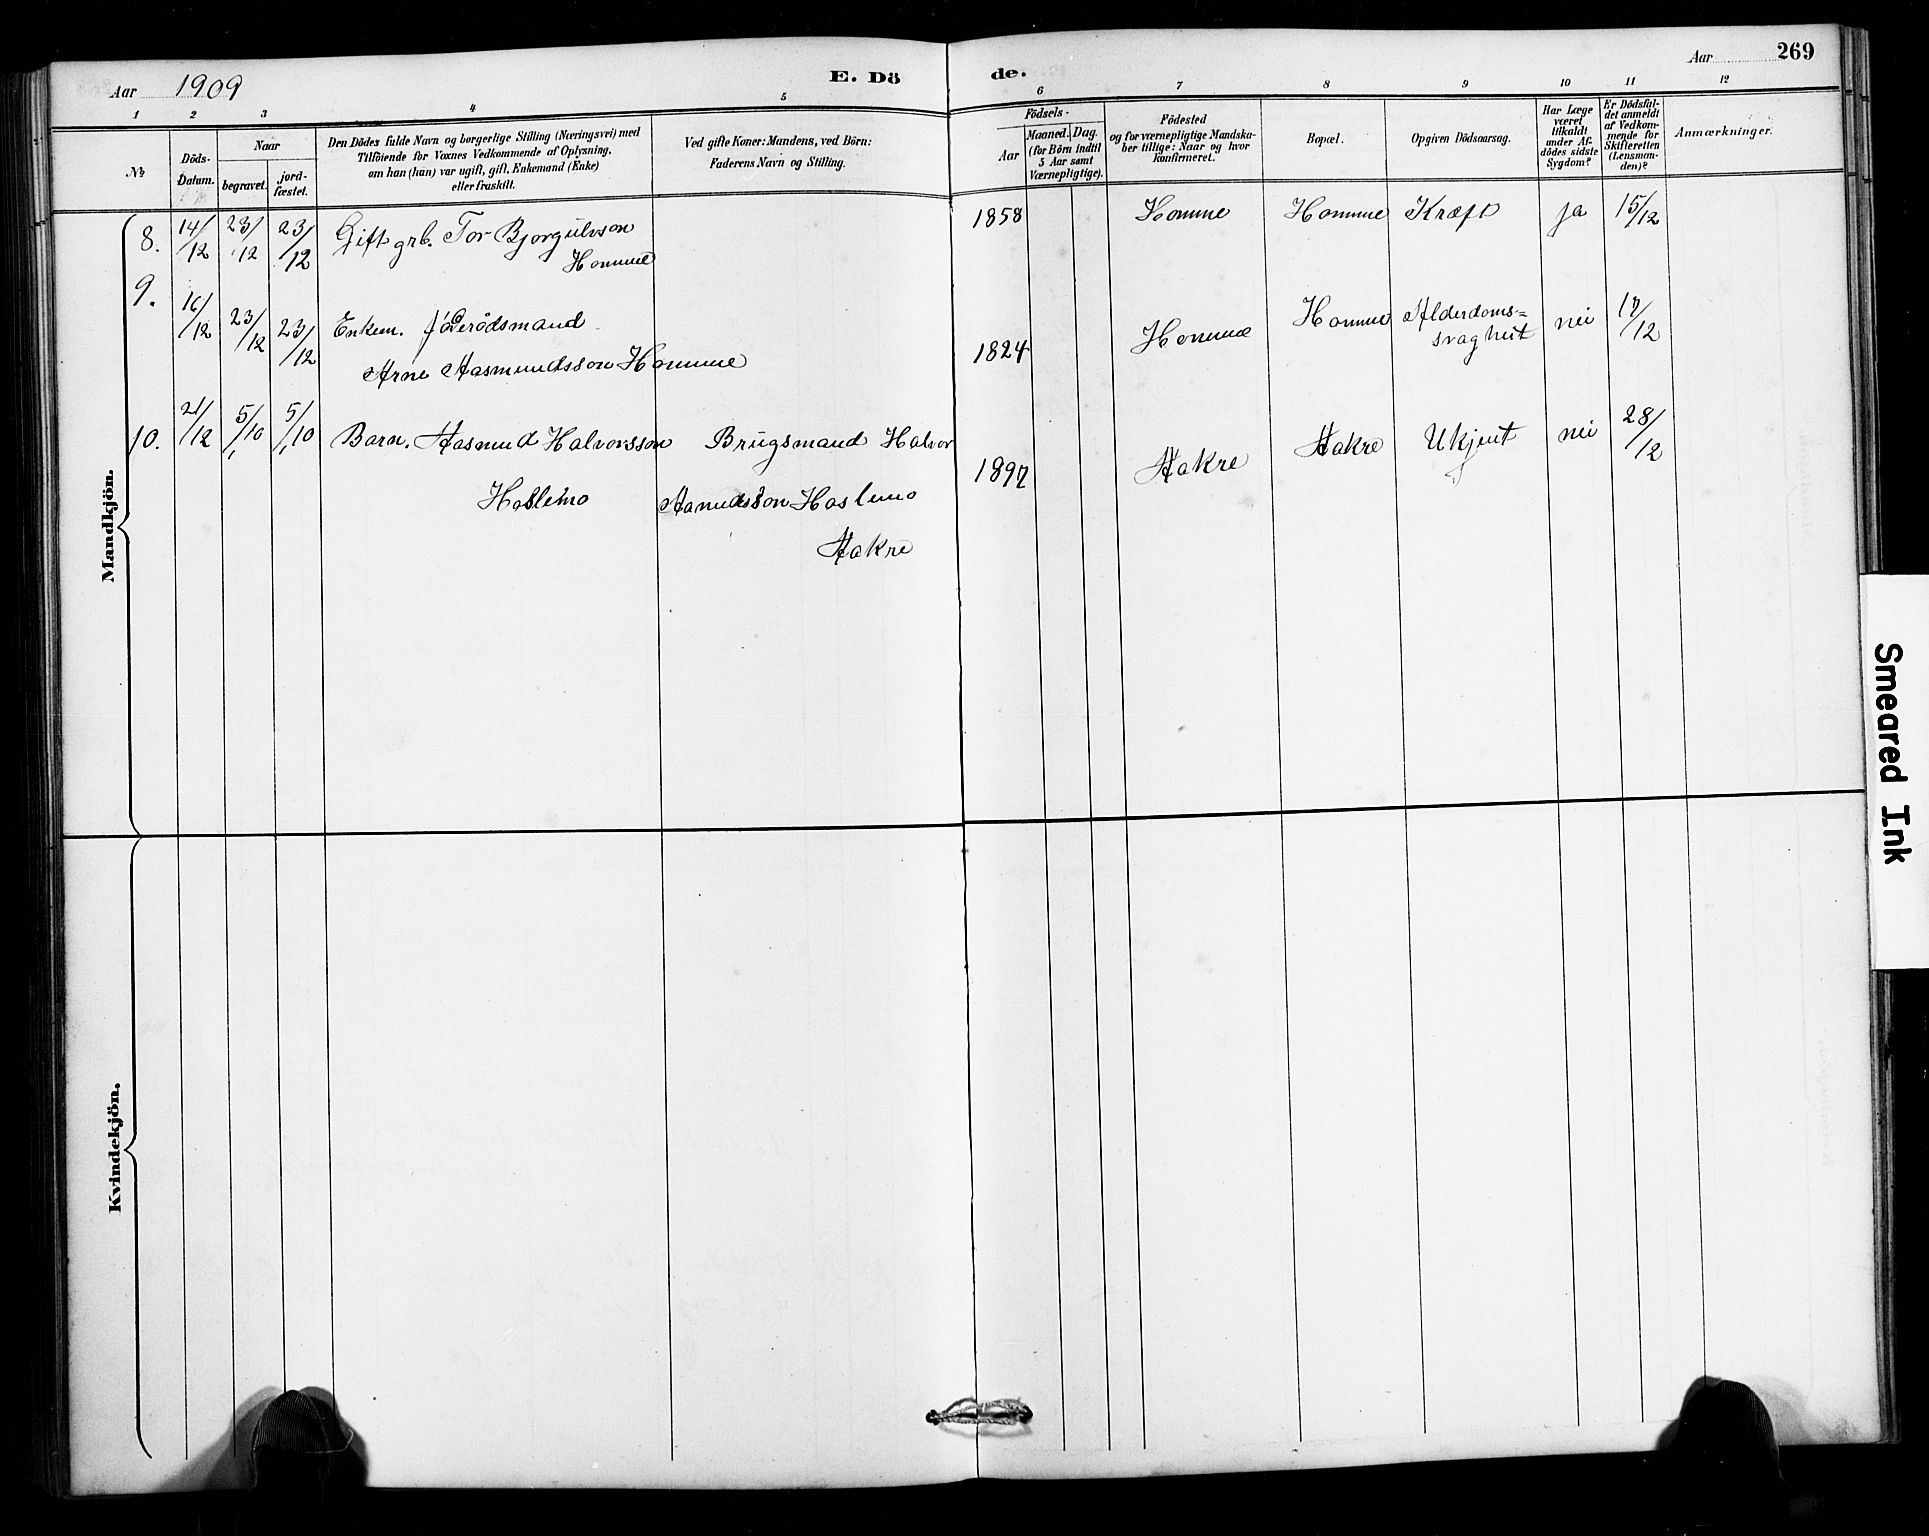 Aar 1909
E. Dö
de.
Aar
269
1 2 3 4 5 6 7 8 9 10 11 12
№
Döds-
Datum.
Naar
begravet.
jord-
fæstet.
Den Dödes fulde Navn og borgerlige Stilling (Næringsvei) med
Tilföiende for Voxnes Vedkommende af Oplysning,
om han (hun) var ugift, gift, Enkemand (Enke)
eller fraskilt.
Ved gifte Koner: Mandens, ved Börn:
Faderens Navn og Stilling.
Födsels-
Aar
Maaned.
Dag.
(for Börn indtil
5 Aar samt
Værnepligtige).
Födested
og for værnepligtige Mandska-
ber tillige: Naar og hvor
konfirmeret.
Bopæl.
Opgiven Dödsaarsag.
Har Læge
været
tilkaldt
under Af-
dödes sidste
Sygdom?
Er Dödsfal-
det anmeldt
af Vedkom-
mende for
Skifteretten
(Lensman-
den)?
Anmærkninger.
Mandkjön.
8. 14/12 23/12 23/12 Gift grb. Tor Bjorgulvson 1858 Homme Homme Kræft ja 15/12
Homme
9. 16/12 23/12 23/12 Enkem. Föderådsmand 1824 Homme Homme Alderdoms= nei 17/12
Arne Aasmundsson Homme
svaghet
10. 21/12 5/10 5/10 Barn. Aasmund Halvorsson Brugsmand Halvor 1897 Aakre Aakre Ukjent nei 28/12
Haslemo
Aamundsson Haslemo
Aakre
Kvindekjön.
Smeared Ink